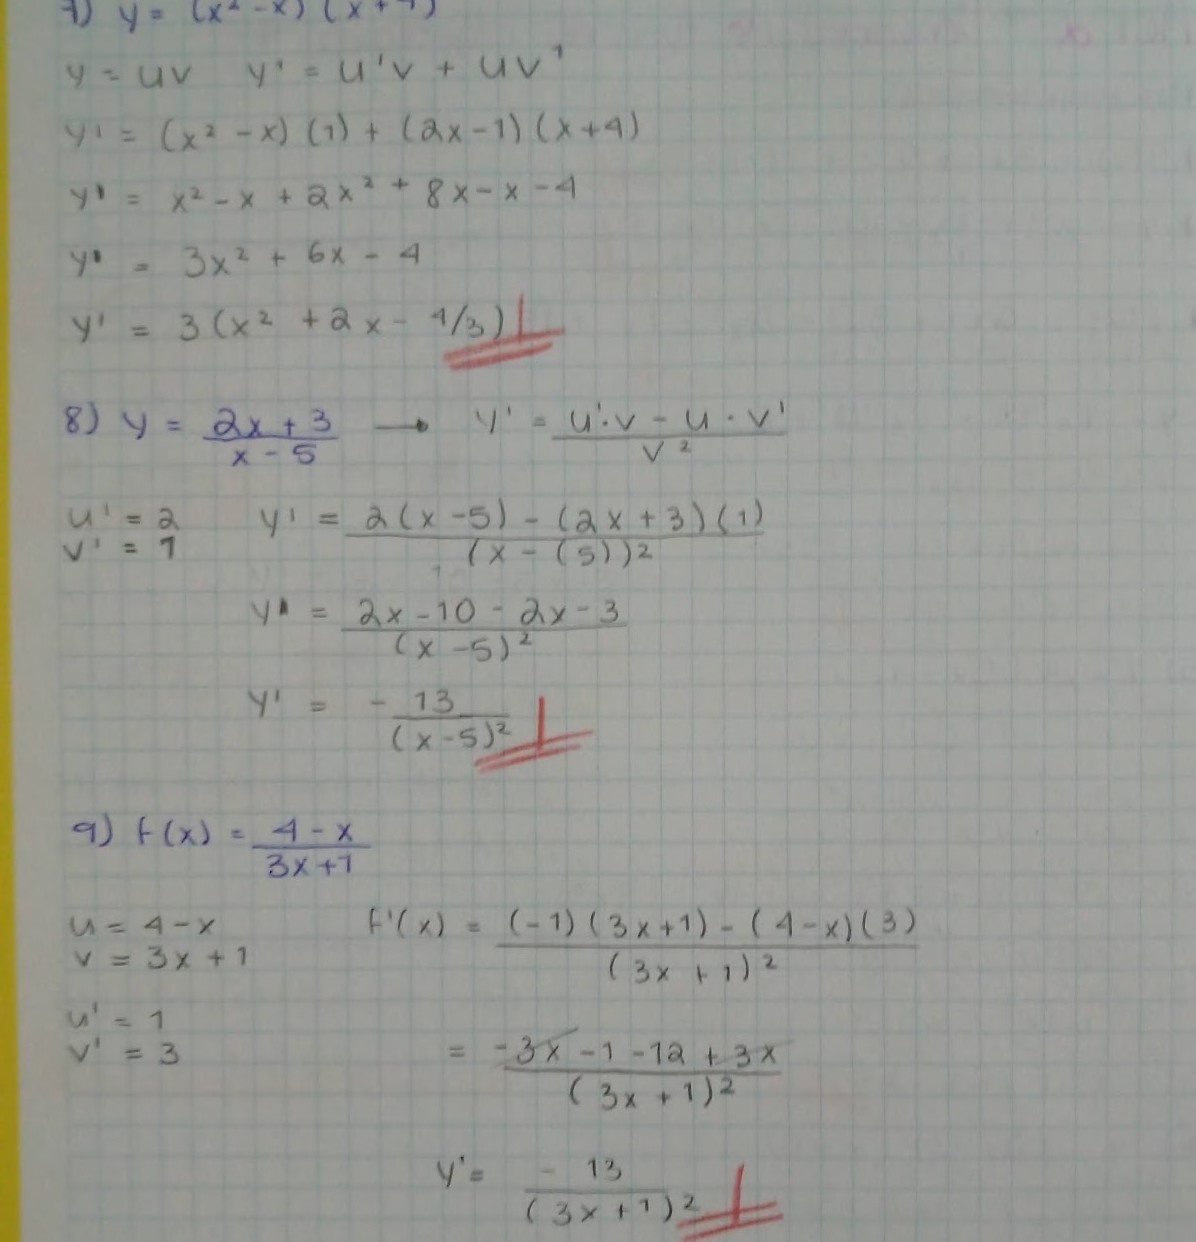 7) y = (x² - x) (x + 4)
y = uv y' = u'v + uv'
y' = (x² - x) (1) + (2x - 1) (x + 4)
y' = x² - x + 2x² + 8x - x - 4
y' = 3x² + 6x - 4
y' = 3 (x² + 2x - 4/3)
8) y = (2x + 3)/(x - 5) → y' = (u'·v - u·v')/v²
u' = 2 y' = (2(x - 5) - (2x + 3)(1))/(x - (5))²
v' = 1
y' = (2x - 10 - 2x - 3)/(x - 5)²
y' = - 13/(x - 5)²
9) f(x) = (4 - x)/(3x + 1)
u = 4 - x f'(x) = ((-1)(3x + 1) - (4 - x)(3))/(3x + 1)²
v = 3x + 1
u' = 1
v' = 3 = (-3x - 1 - 12 + 3x)/(3x + 1)²
y' = - 13/(3x + 1)²